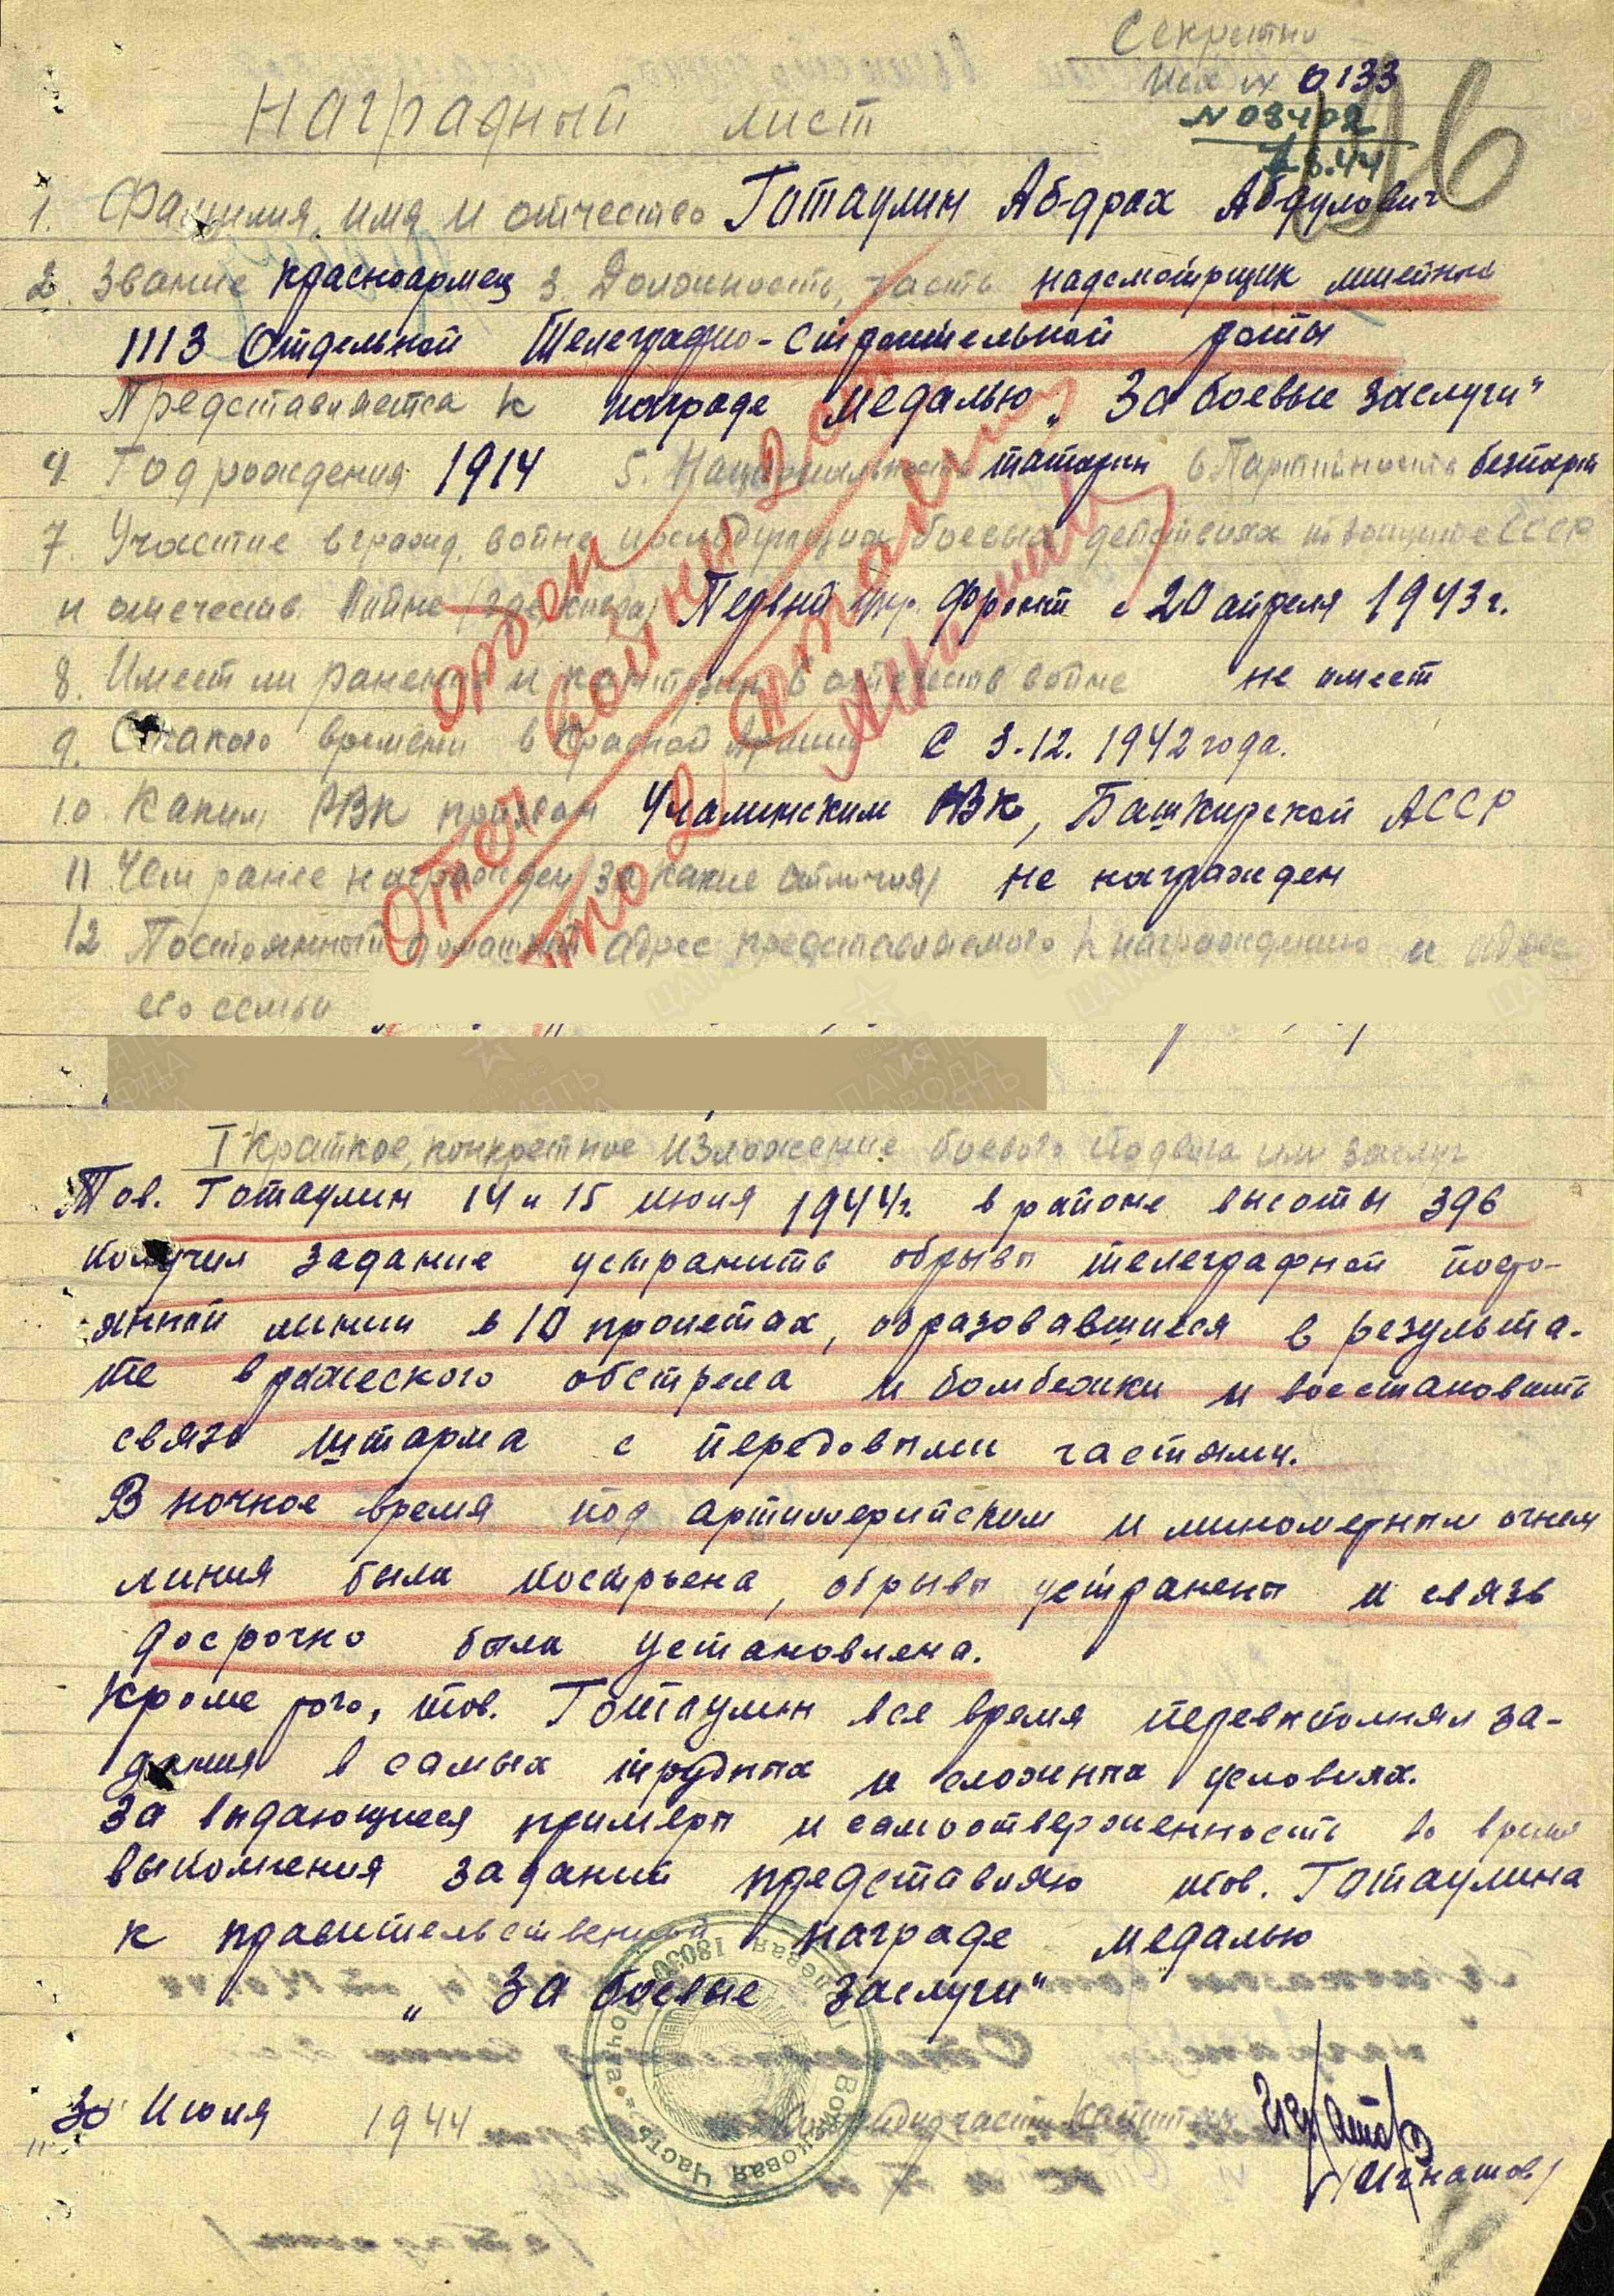 Секретно
Исх № 0133
N 08402
8.44
196
Наградный лист
1. Фамилия, имя и отчество Готаулин Абдрах Абдулович
2. Звание красноармец 3. Должность, часть надсмотрщик линейный
1113 Отдельной Телеграфно-строительной роты
Представляется к награде медалью „За боевые заслуги"
4. Год рождения 1914 5. Национальность татарин 6 Партийность безпарт
7. Участие в гражд. войне, последующих боевых действиях по защите СССР
и отечеств. войне (где, когда) Первый укр. фронт с 20 апреля 1943 г.
8. Имеет ли ранения и контузии в отечеств войне не имеет
9. С какого времени в Красной Армии С 3.12.1942 года.
10. Каким РВК призван Учалинским РВК, Башкирской АССР
11 Чем ранее награжден (за какие отличия) не награжден
12. Постоянный домашний адрес представляемого к награждению и адрес
его семьи
орден
Отеч войны 2 ст
I Краткое, конкретное изложение боевого подвига или заслуг
Тов. Готаулин 14 и 15 июля 1944г. в районе высоты 396
получил задание устранить обрывы телеграфной посто-
янной линии в 10 пролетах, образовавшиеся в результа-
те вражеского обстрела и бомбежки и восстановить
связь штарма с передовыми частями.
В ночное время под артиллерийским и минометным огнем
линия была построена, обрывы устранены и связь
досрочно была установлена.
Кроме того, тов. Готаулин все время перевыполнял за-
дания в самых трудных и сложных условиях.
За выдающиеся примеры и самоотверженность во время
выполнения заданий представляю тов. Готаулина
к правительственной награде медалью
„За боевые заслуги"
Полевая Почта 18030 Войсковая Часть
30 Июля 1944 Командир части Капитан
/Игнатов/